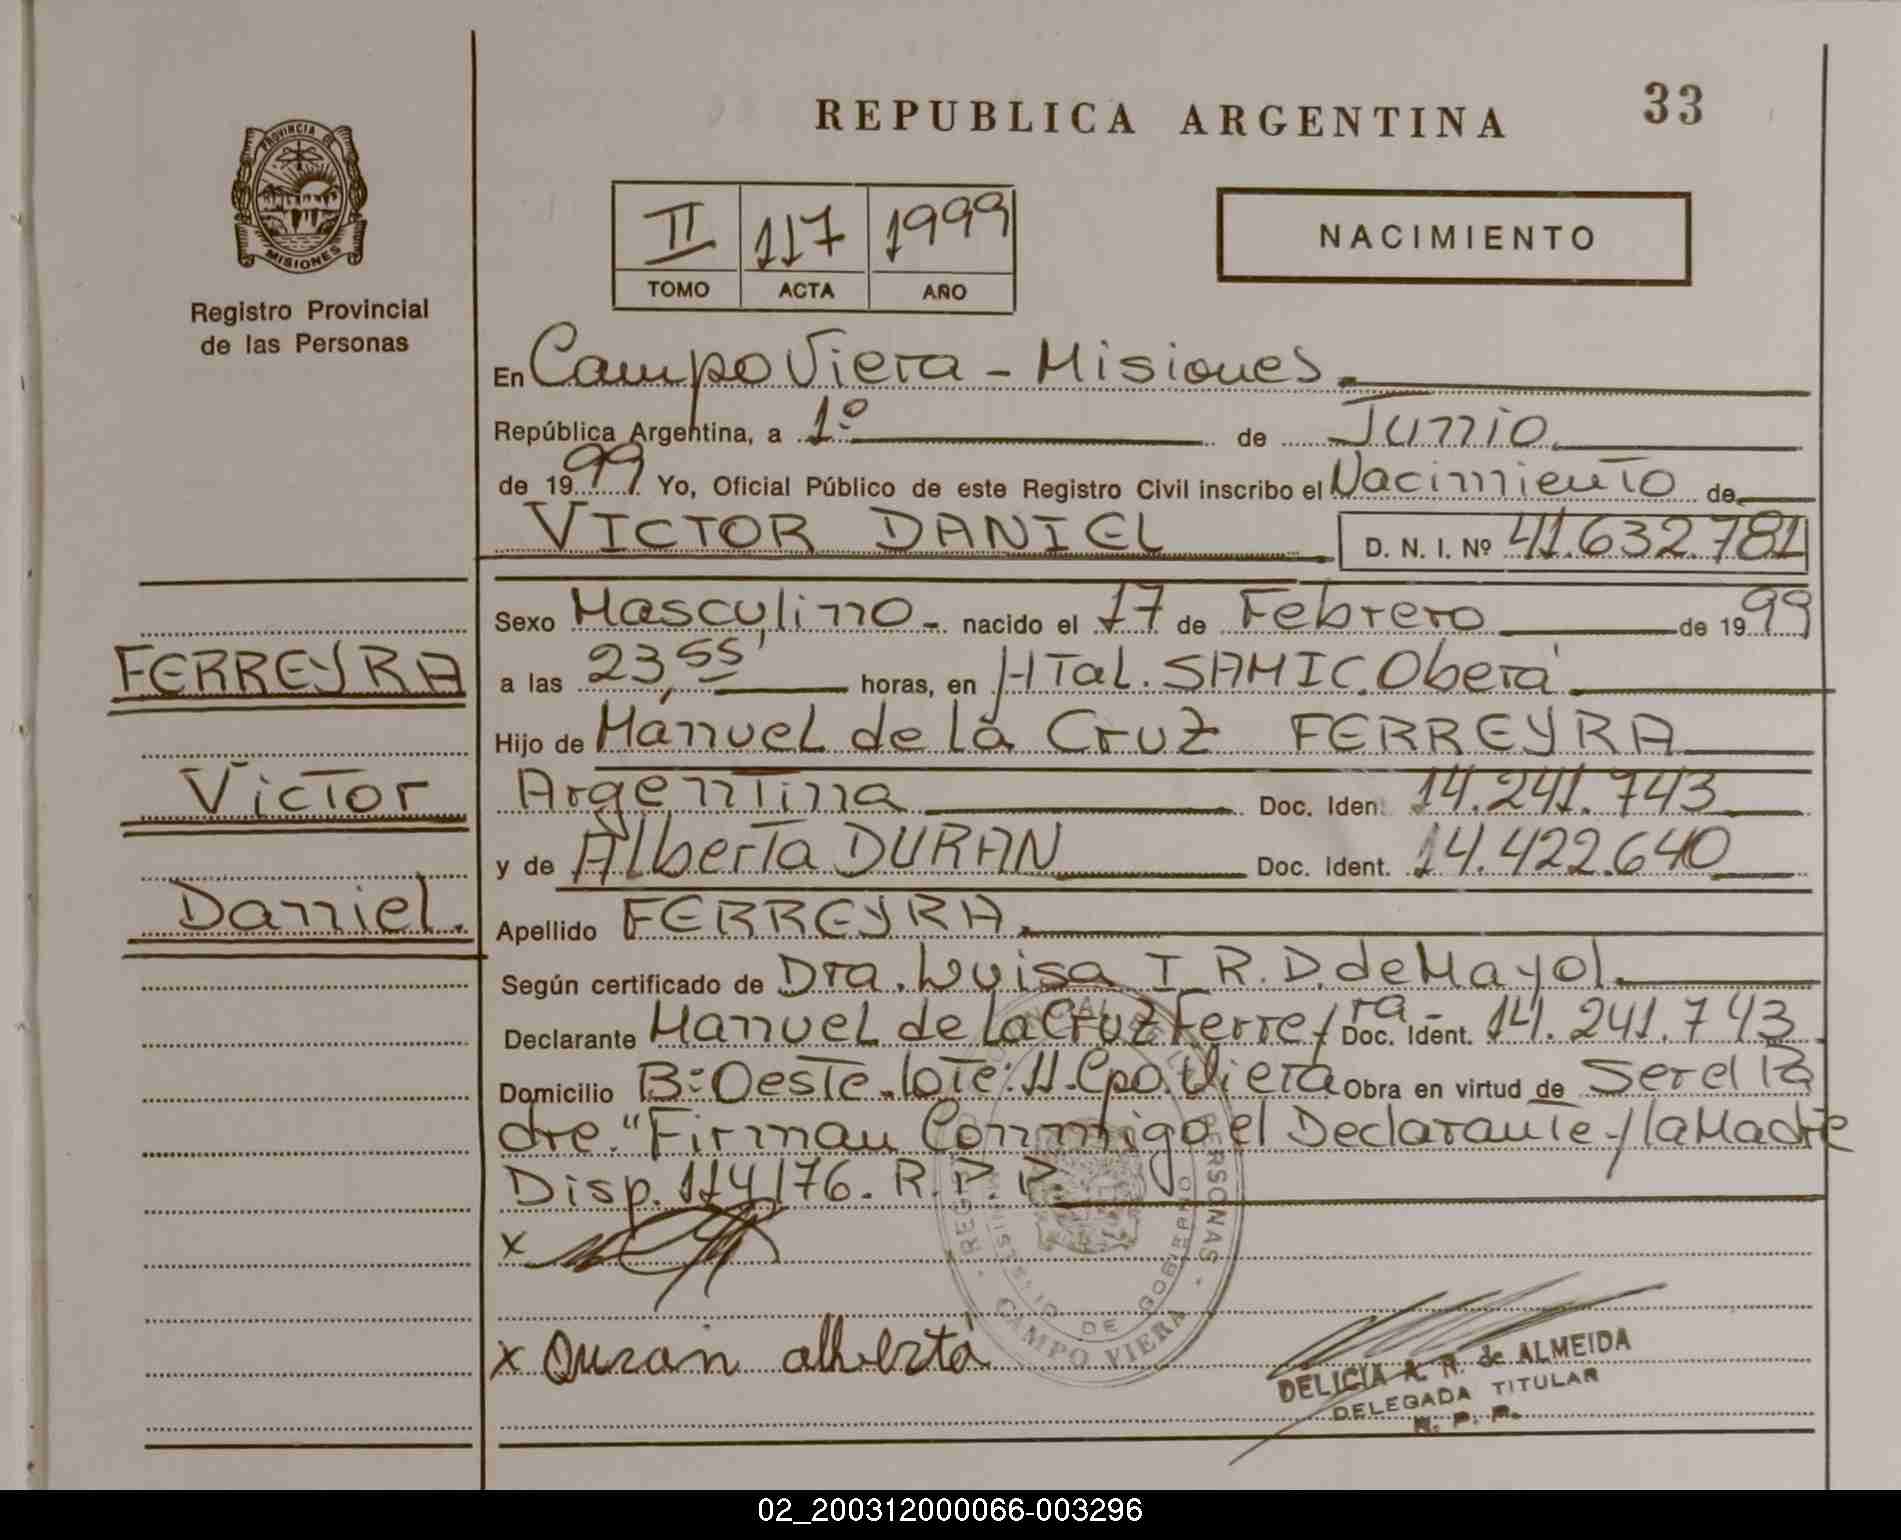 REPUBLICA ARGENTINA
33
PROVINCIA DE
MISIONES
Registro Provincial
de las Personas
II 117 1999
TOMO ACTA AÑO
NACIMIENTO
En Campo Viera - Misiones.
República Argentina, a 1º de Junio
de 1999 Yo, Oficial Público de este Registro Civil inscribo el Nacimiento de
VICTOR DANIEL D. N. I. Nº 41.632.781
Sexo Masculino - nacido el 17 de Febrero de 1999
a las 23,55' horas, en HTal. SAMIC. Oberá
Hijo de Manuel de la Cruz FERREYRA
Argentina Doc. Iden. 14.241.743
y de Alberta DURAN Doc. Ident. 14.422.640
Apellido FERREYRA.
Según certificado de Dra. Luisa I R. D. de Mayol.
Declarante Manuel de la Cruz Ferreyra - Doc. Ident. 14.241.743
Domicilio B: Oeste. lote: 11. Cpo. Viera Obra en virtud de Ser el Pa
dre. "Firman Conmigo el Declarante y la Madre
Disp. 114/76. R. P. P.
x
x Duran alberta
FERREYRA
Victor
Daniel.
PERSONAS
MINISTERIO DE GOBIERNO
CAMPO VIERA
DELICIA A. R. de ALMEIDA
DELEGADA TITULAR
R. P. P.
02_200312000066-003296